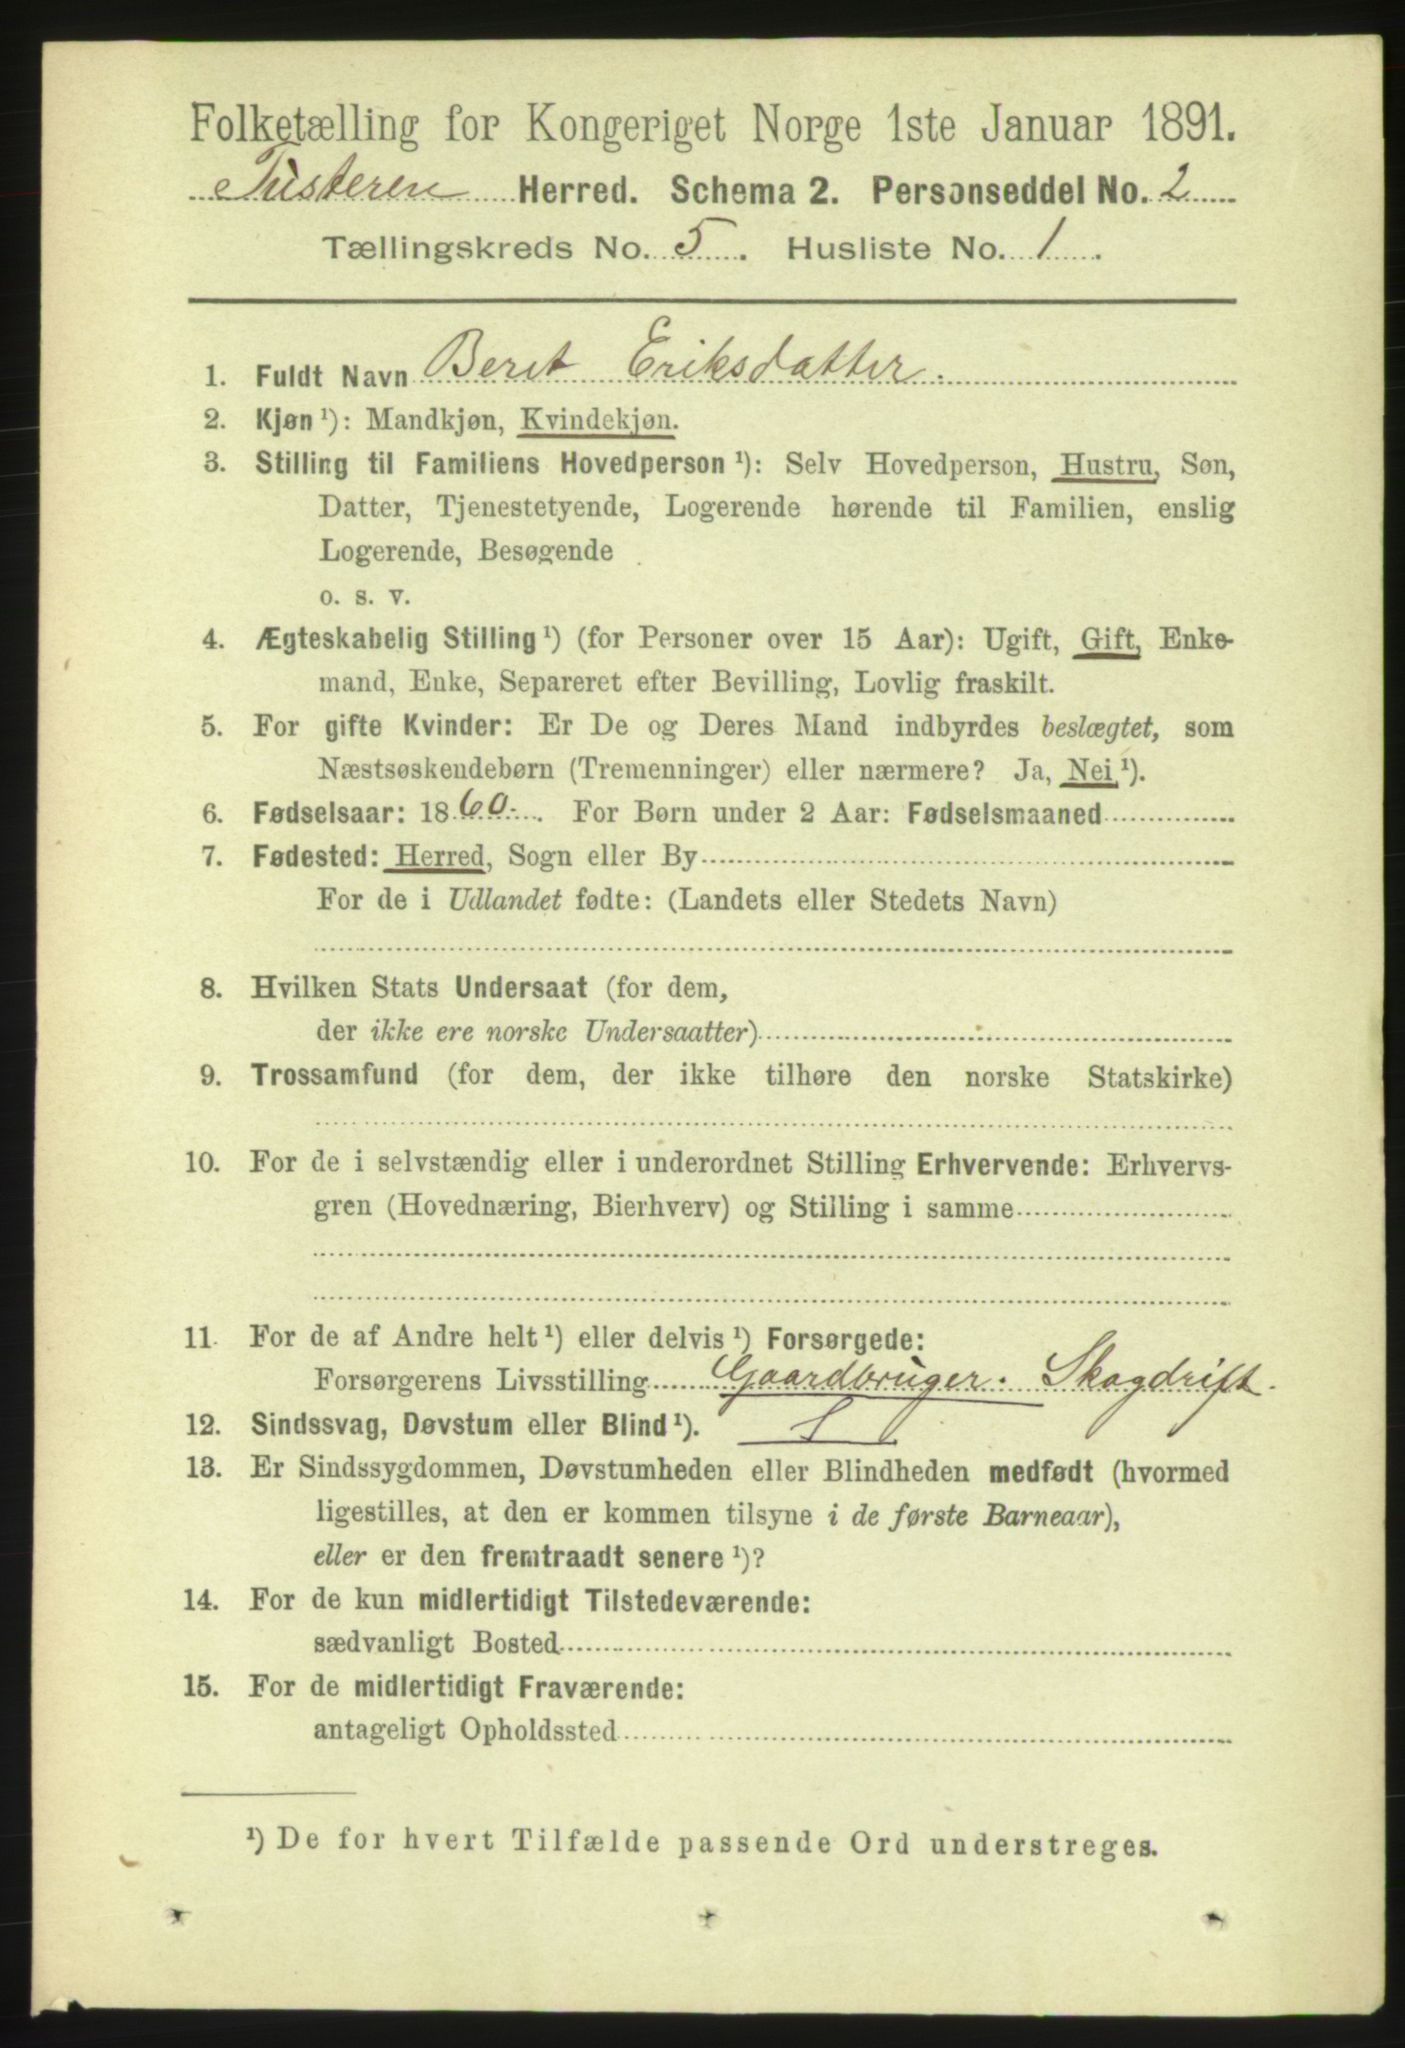 Folketælling for Kongeriget Norge 1ste Januar 1891.
Tusteren Herred. Schema 2. Personseddel No. 2
Tællingskreds No. 5. Husliste No. 1.
1. Fuldt Navn Beret Eriksdatter.
2. Kjøn ¹): Mandkjøn, Kvindekjøn.
3. Stilling til Familiens Hovedperson ¹): Selv Hovedperson, Hustru, Søn,
Datter, Tjenestetyende, Logerende hørende til Familien, enslig
Logerende, Besøgende
o. s. v.
4. Ægteskabelig Stilling ¹) (for Personer over 15 Aar): Ugift, Gift, Enke-
mand, Enke, Separeret efter Bevilling, Lovlig fraskilt.
5. For gifte Kvinder: Er De og Deres Mand indbyrdes beslægtet, som
Næstsøskendebørn (Tremenninger) eller nærmere? Ja, Nei ¹).
6. Fødselsaar: 1860. For Børn under 2 Aar: Fødselsmaaned
7. Fødested: Herred, Sogn eller By
For de i Udlandet fødte: (Landets eller Stedets Navn)
8. Hvilken Stats Undersaat (for dem,
der ikke ere norske Undersaatter)
9. Trossamfund (for dem, der ikke tilhøre den norske Statskirke)
10. For de i selvstændig eller i underordnet Stilling Erhvervende: Erhvervs-
gren (Hovednæring, Bierhverv) og Stilling i samme
11. For de af Andre helt ¹) eller delvis ¹) Forsørgede:
Forsørgerens Livsstilling Gaardbruger. Skogdrift.
12. Sindssvag, Døvstum eller Blind ¹).
13. Er Sindssygdommen, Døvstumheden eller Blindheden medfødt (hvormed
ligestilles, at den er kommen tilsyne i de første Barneaar),
eller er den fremtraadt senere ¹)?
14. For de kun midlertidigt Tilstedeværende:
sædvanligt Bosted
15. For de midlertidigt Fraværende:
antageligt Opholdssted
¹) De for hvert Tilfælde passende Ord understreges.